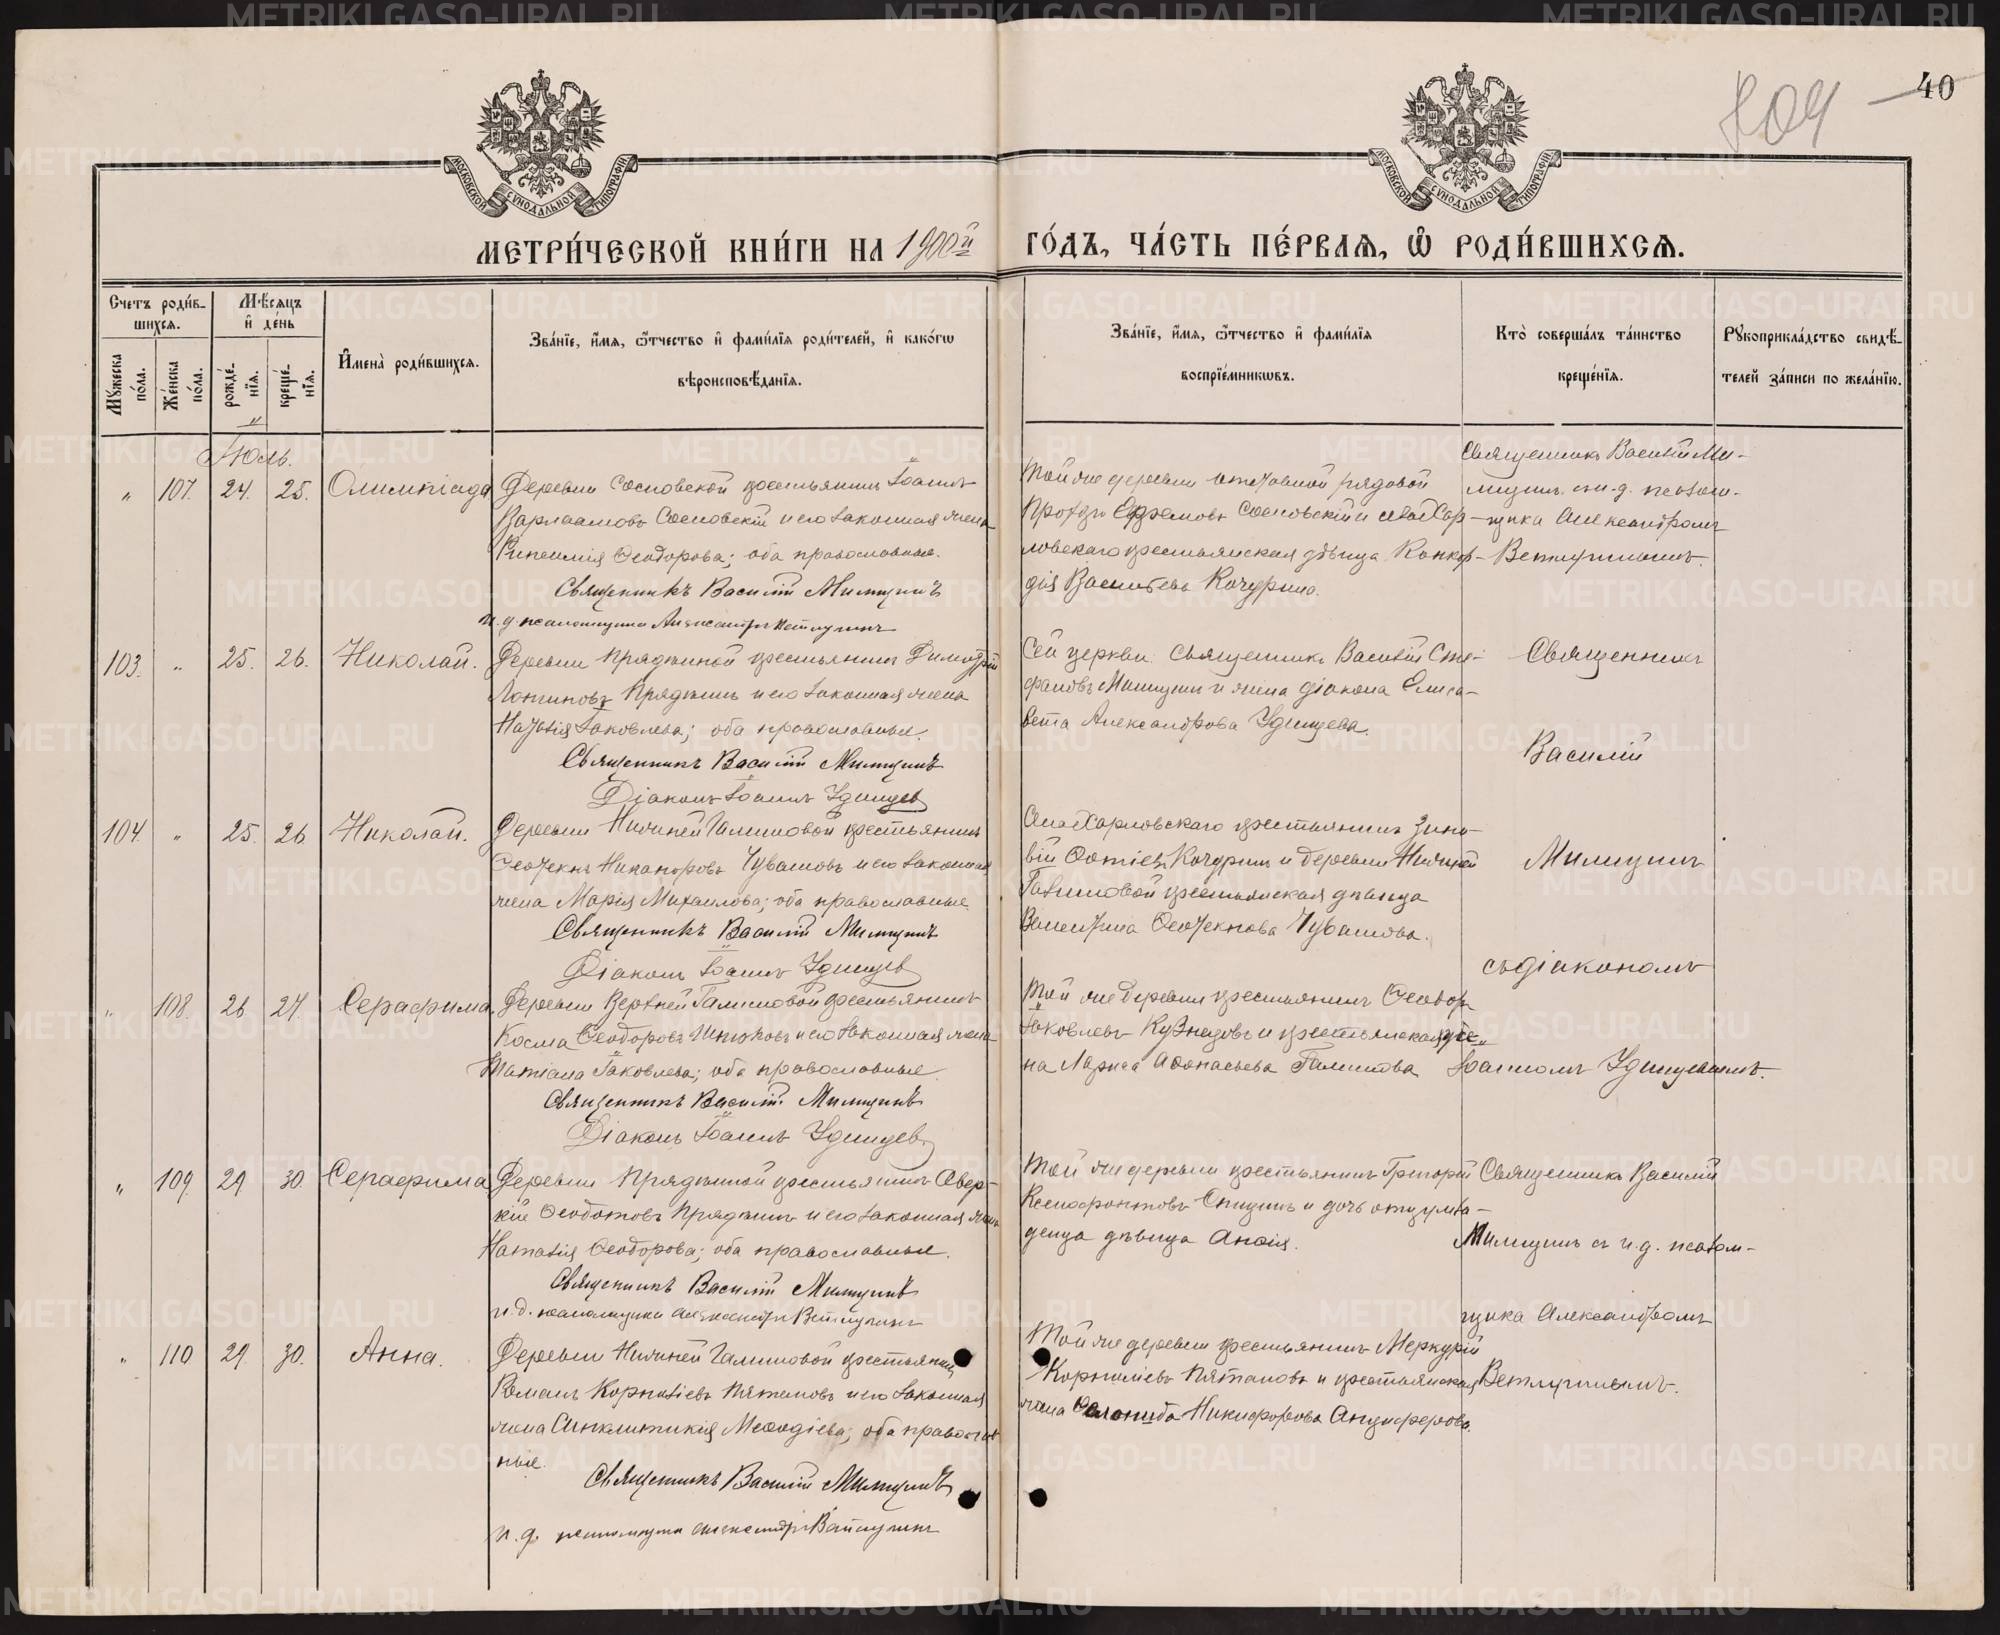 40
МОСКОВСКОЙ СѴНОДАЛЬНОЙ ТИПОГРАФІИ
МОСКОВСКОЙ СѴНОДАЛЬНОЙ ТИПОГРАФІИ
МЕТРИ́ЧЕСКОЙ КНИ́ГИ НА 1900й ГО́ДЪ, ЧА́СТЬ ПЕ́РВАЯ, Ѡ РОДИ́ВШИХСЯ.
Счетъ роди́в-
шихся.
Мѣсяцъ
и де́нь
Мꙋжеска по́ла.
Же́нска по́ла.
рожде́-нїя.
креще́-нїя.
Имена̀ роди́вшихся.
Зва́нїе, и́мя, ѻ́тчество и фами́лїя роди́телей, и како́гѡ
вѣроисповѣ́данїя.
Зва́нїе, и́мя, ѻ́тчество и фами́лїя
воспрїе́мникѡвъ.
Кто̀ соверша́лъ та́инство
креще́нїя.
Рꙋкоприкла́дство свидѣ́-
телей за́писи по жела́нїю.
Іюль.
" 107. 24. 25. Олимпіада
Деревни Сосновской крестьянинъ Іоаннъ
Варлаамовъ Сосновскій и его законная жена
Ѳеодорова; оба православные.
Священникъ Василій Милицинъ
и. д. псаломщика Александръ Ветлугинъ
Той же деревни рядовой
Ефремовъ Сосновскій и села Хар-
ловскаго крестьянская дѣвица Конкор-
дія Васильева Кочурина.
Священникъ Василій Ми-
лицинъ съ и. д. псалом-
щика Александромъ
Ветлугинымъ.
103. " 25. 26. Николай.
Деревни Прядкиной крестьянинъ Димитрій
Логиновъ Прядкинъ и его законная жена
Наталія Іаковлева; оба православные.
Священникъ Василій Милицинъ
Діаконъ Іоаннъ Удинцев
Сей церкви священникъ Василій Сте-
фановъ Милицинъ и жена діакона Елиса-
вета Александрова Удинцева.
Священникъ
Василій
104. " 25. 26. Николай.
Деревни Нижней Галишовой крестьянинъ
Никаноровъ Чувашовъ и его законная
жена Марія Михаилова; оба православные.
Священникъ Василій Милицинъ
Діаконъ Іоаннъ Удинцев
Села Харловскаго крестьянинъ Зино-
вій Кочуринъ и деревни Нижней
Галишовой крестьянская дѣвица
Валентина Чувашова.
Милицинъ
съ діакономъ
" 108. 26. 27. Серафима.
Деревни Верхней Галишовой крестьянинъ
Косма Ѳеодоровъ и его законная жена
Татіана Іаковлева; оба православные.
Священникъ Василій Милицинъ
Діаконъ Іоаннъ Удинцев
Той же деревни крестьянинъ Ѳеодоръ
Іаковлевъ Кузнецовъ и крестьянская же-
на Лариса Аѳанасьева Галишова
Іоанномъ Удинцевымъ.
" 109. 29. 30. Серафима
Деревни Прядкиной крестьянинъ Авер-
кій Ѳеодотовъ Прядкинъ и его законная жена
Наталія Ѳеодорова; оба православные.
Священникъ Василій Милицинъ
и. д. псаломщика Александръ Ветлугинъ
Той же деревни крестьянинъ Григорій
Ксенофонтовъ Спицинъ и дочь отца мла-
денца дѣвица Анѳія.
Священникъ Василій
Милицинъ съ и. д. псалом-
щика Александромъ
Ветлугинымъ.
" 110 29. 30. Анна.
Деревни Нижней Галишовой крестьянинъ
Романъ Корниліевъ Пятановъ и его законная
жена Синклитикія Меѳодіева; оба православ-
ные.
Священникъ Василій Милицинъ
и. д. псаломщика Александръ Ветлугинъ
Той же деревни крестьянинъ Меркурій
Корниліевъ Пятановъ и крестьянская
жена Никифорова Анциферова.
METRIKI.GASO-URAL.RU